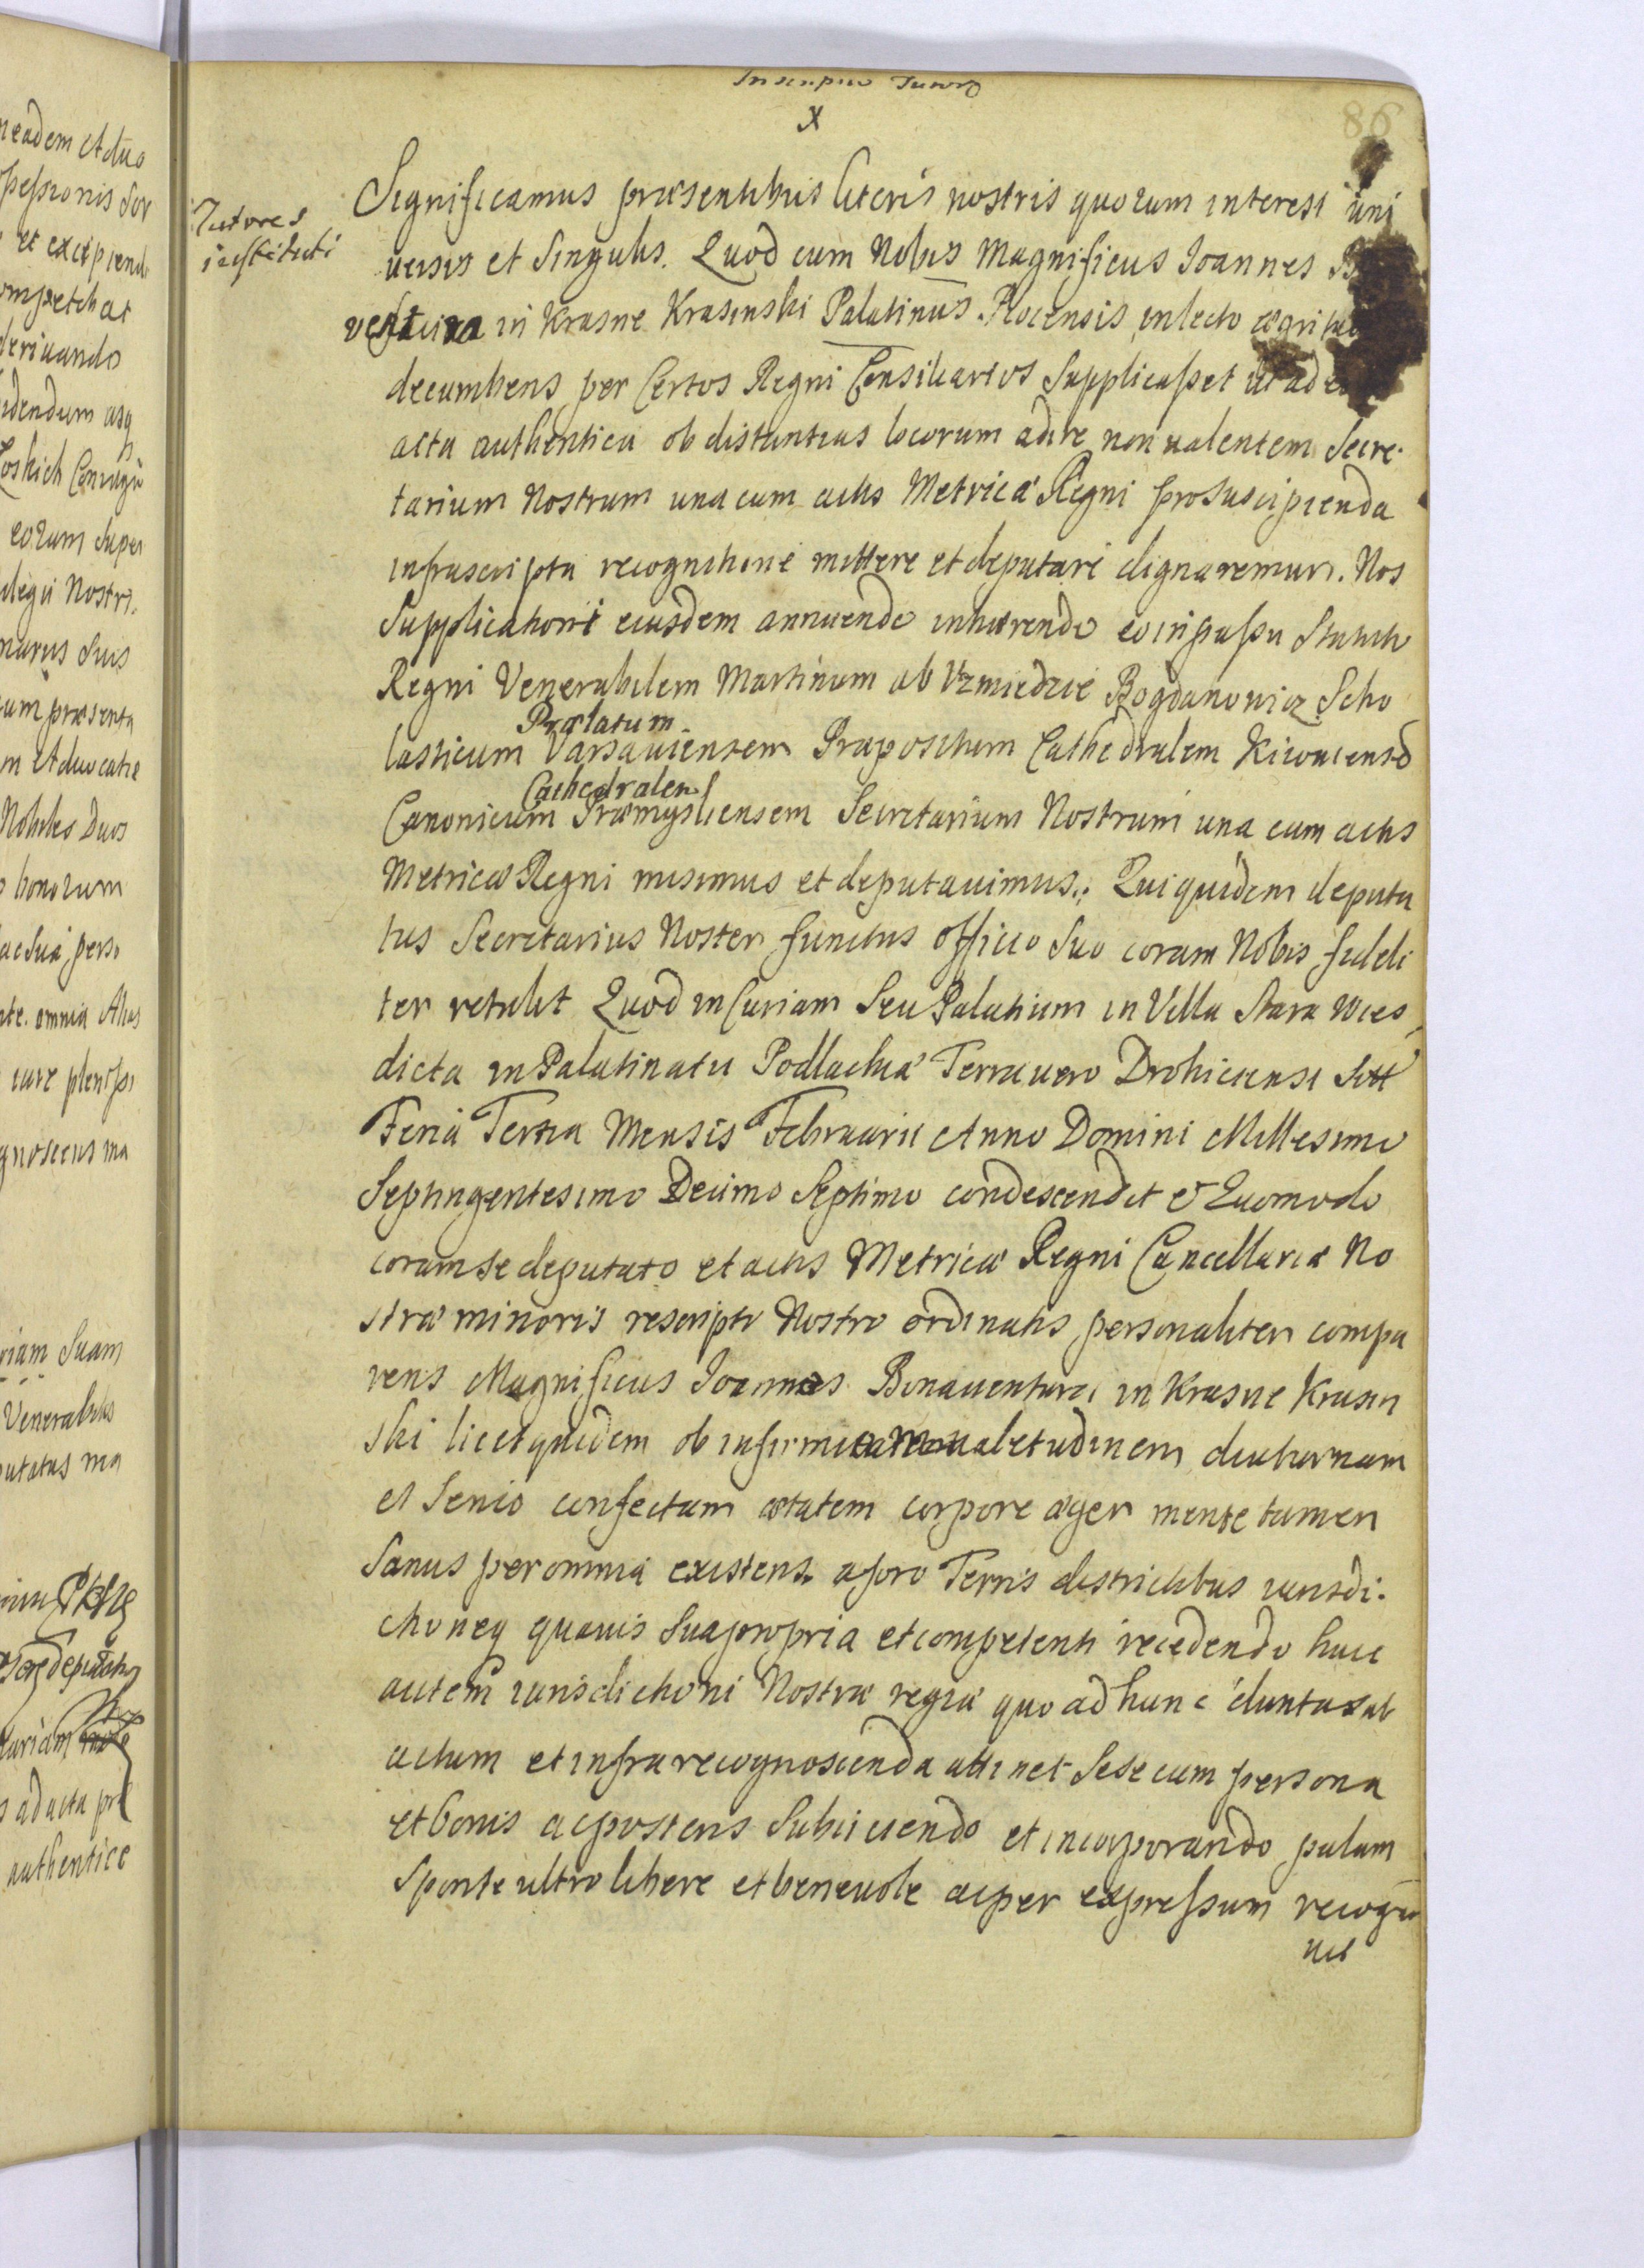 Inscriptio Tutorum
X
86
Tutores
instituti
Significamus præsentibus literis nostris quorum interest uni
uersis et Singulis. Quod cum Nobis Magnificus Joannes B
ventura in Krasne Krasinski Palatinus Plocensis, in lecto ægritu
decumbens per Certos Regni Consiliarios Supplicasset ut ad
acta authentica ob distantias locorum adire non ualentem Secre-
tarium Nostrum una cum actis Metricæ Regni pro suscipienda
infrascripta recognitione mittere et deputare dignaremur. Nos
Supplicationi eiusdem annuendo inhærendo eo in passu Statutis
Regni Venerabilem Martinum ab Uzmiedzie Bogdanowicz Scho
Prælatum
lasticum Varsauiensem Præpositum Cathedralem Kiiouiensem
Cathedralem
Canonicum Præmysliensem Secretarium Nostrum una cum actis
Metricæ Regni misimus et deputauimus. Qui quidem deputa
tus Secretarius Noster functus officio Suo coram Nobis fideli
ter retulit Quod in Curiam Seu Palatium in Villa Stara Wies
dicta in Palatinatu Podlachiæ Terra uero Drohiciensi Sitt
Feria Tertia Mensis Februarii Anno Domini Millesimo
Septingentesimo Decimo Septimo condescendit & Quomodo
coram se deputato et actis Metricæ Regni Cancellariæ No
stræ minoris rescripto Nostro ordinatis personaliter compa
rens Magnificus Joannes Bonauentura in Krasne Krasin
ski licet quidem ob infirmitatem ualetudinem diuturnam
et Senio confectam ætatem corpore æger mente tamen
Sanus per omnia existens a foro Terris districtibus iurisdi-
ctioneq quauis Sua propria et competenti recedendo huic
autem iurisdictioni Nostræ regiæ quo ad hunc duntaxat
actum et infra recognoscenda attinet Sese cum persona
et bonis ac posteris Subiiciendo et incorporando palam
Sponte ultro libere et beneuole ac per expressum recogno
uit